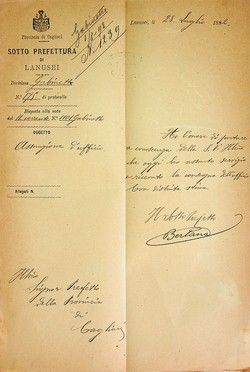 Provincia di Cagliari
SOTTO PREFETTURA
DI
LANUSEI
Divisione Gabinetto
N.° 175 di protocollo
Risposta alla nota
del corrente N.° Gabinetto
OGGETTO
Assunzione d'ufficio
Allegati N.
Gabinetto
N. 1239
Ill.mo
Signor Prefetto
della Provincia
di
Cagliari
Lanusei, il 28 Luglio
Ho l'onore di portare
a conoscenza della S.V. Ill.ma
che oggi ho assunto servizio
e ricevuto la consegna dell'ufficio
Con distinta stima
Il Sotto Prefetto
Bertana